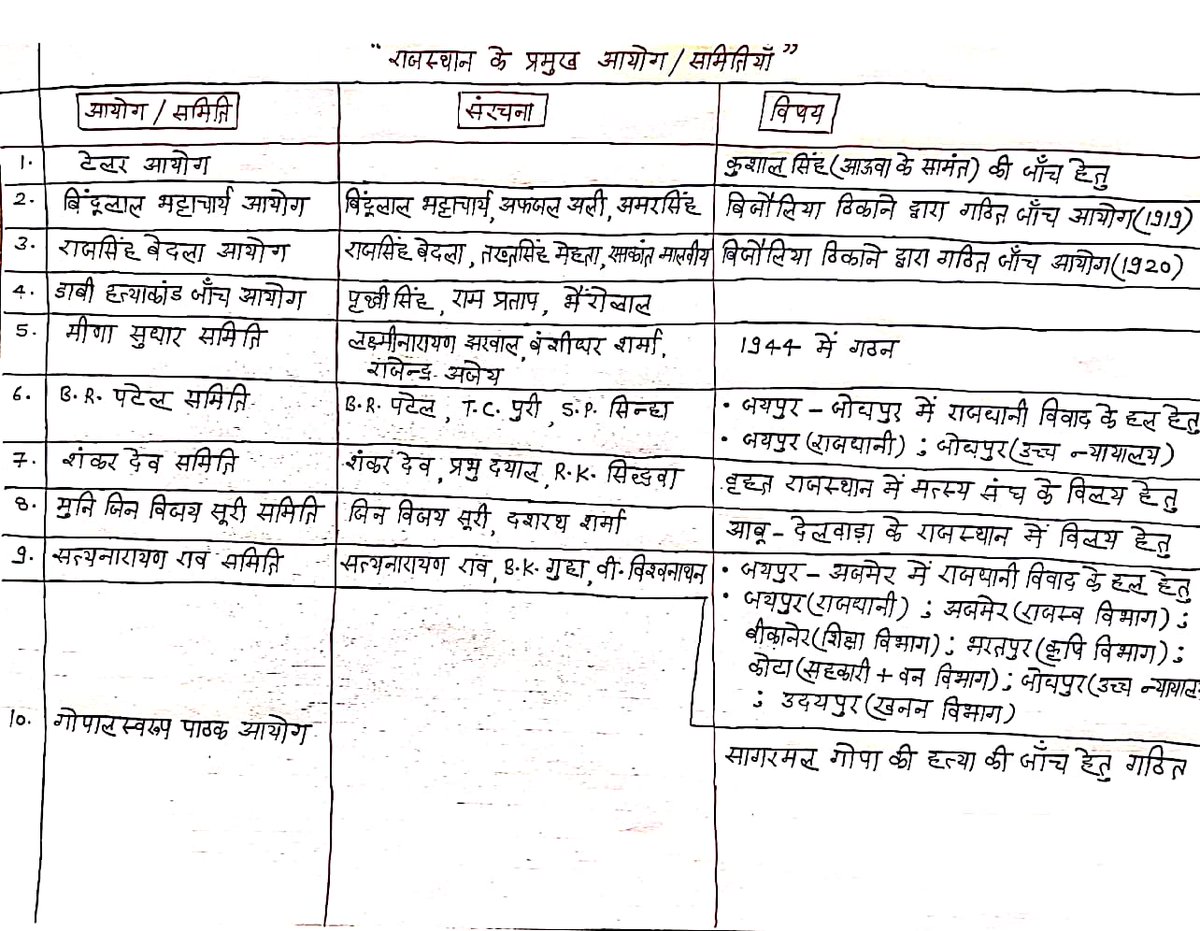 "राजस्थान के प्रमुख आयोग / समितियाँ"
आयोग / समिति संरचना विषय
1. टेलर आयोग कुशाल सिंह (आऊवा के सामंत) की जाँच हेतु
2. बिंदूलाल भट्टाचार्य आयोग बिंदूलाल भट्टाचार्य, अफजल अली, अमरसिंह बिजौलिया ठिकाने द्वारा गठित जाँच आयोग (1919)
3. राजसिंह बेदला आयोग राजसिंह बेदला, तख्तसिंह मेहता, रमाकांत मालवीय बिजौलिया ठिकाने द्वारा गठित जाँच आयोग (1920)
4. डाबी हत्याकांड जाँच आयोग पृथ्वी सिंह, राम प्रताप, भैंरोलाल
5. मीणा सुधार समिति लक्ष्मीनारायण झरवाल, बंशीधर शर्मा, 1944 में गठन
राजेन्द्र अजेय
6. B.R. पटेल समिति B.R. पटेल, T.C. पुरी, S.P. सिन्हा • जयपुर - जोधपुर में राजधानी विवाद के हल हेतु
• जयपुर (राजधानी) ; जोधपुर (उच्च न्यायालय)
7. शंकर देव समिति शंकर देव, प्रभु दयाल, R.K. सिद्धवा वृहत राजस्थान में मत्स्य संघ के विलय हेतु
8. मुनि जिन विजय सूरी समिति जिन विजय सूरी, दशरथ शर्मा आबू - देलवाड़ा के राजस्थान में विलय हेतु
9. सत्यनारायण राव समिति सत्यनारायण राव, B.K. गुहा, वी. विश्वनाथन • जयपुर - अजमेर में राजधानी विवाद के हल हेतु
• जयपुर (राजधानी) ; अजमेर (राजस्व विभाग) ;
बीकानेर (शिक्षा विभाग) ; भरतपुर (कृषि विभाग) ;
कोटा (सहकारी + वन विभाग) ; जोधपुर (उच्च न्यायाल
; उदयपुर (खनन विभाग)
10. गोपालस्वरूप पाठक आयोग सागरमल गोपा की हत्या की जाँच हेतु गठित